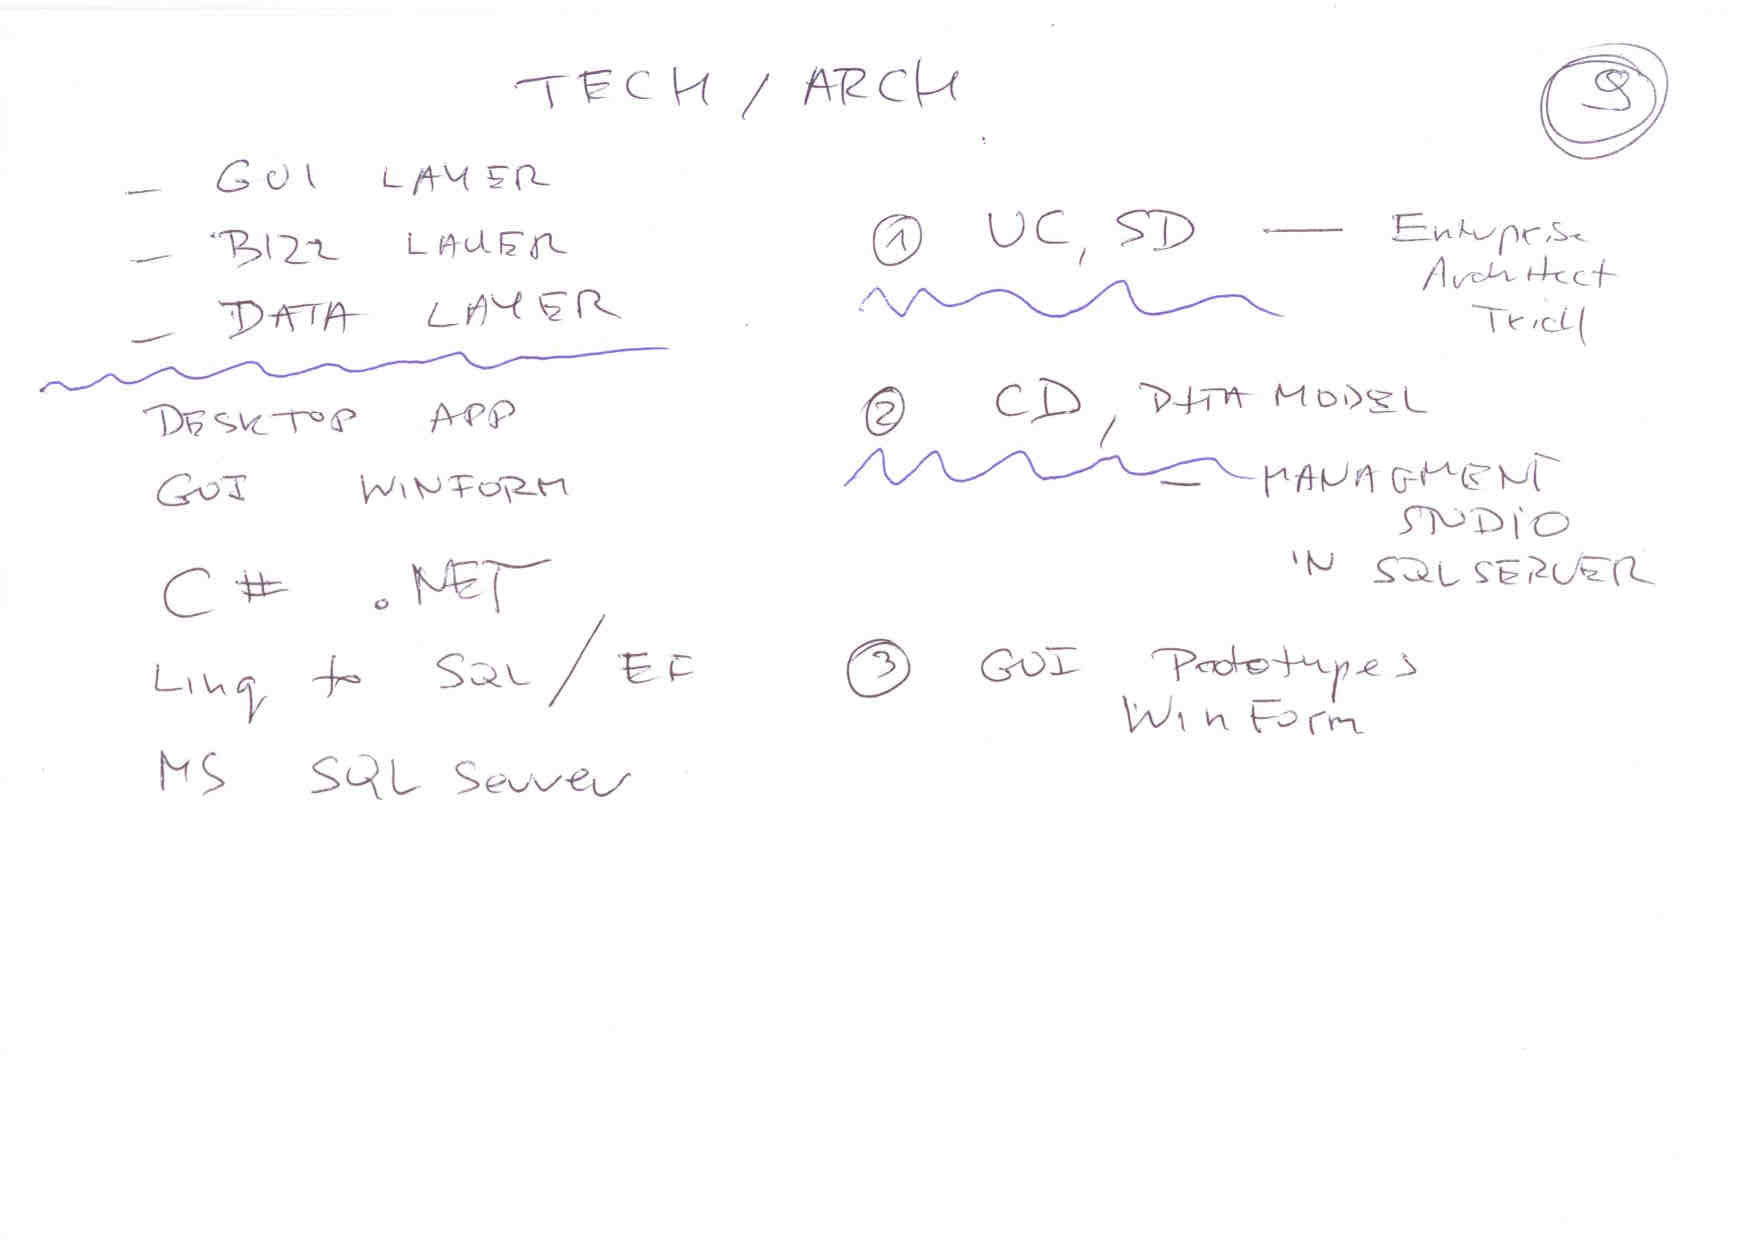 TECH / ARCH
9
- GUI LAYER
- BIZZ LAYER
- DATA LAYER
DESKTOP APP
GUI WINFORM
C# .NET
Linq to SQL / EF
MS SQL Server
1 UC, SD — Enterprise
Architect
Trial
2 CD, DATA MODEL
- MANAGMENT
STUDIO
IN SQL SERVER
3 GUI Prototypes
WinForm